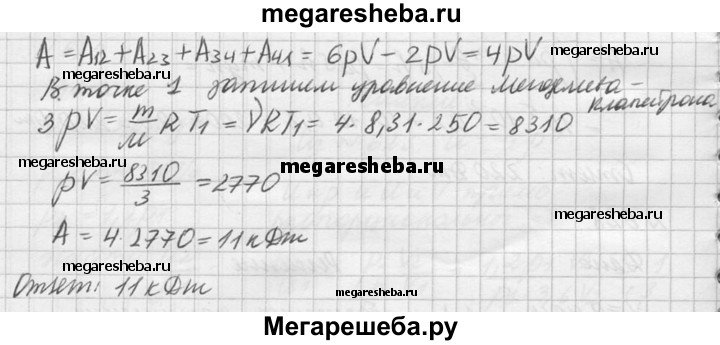 megaresheba.ru
A = A12 + A23 + A34 + A41 = 6pV - 2pV = 4pV
megaresheba.ru megaresheba.ru
В точке 1 запишем уравнение Менделеева - Клапейрона
3pV = m/M RT1 = νRT1 = 4·8,31·250 = 8310
megaresheba.ru
pV = 8310/3 = 2770
megaresheba.ru megaresheba.ru
A = 4·2770 = 11 кДж
megaresheba.ru
Ответ: 11 кДж
megaresheba.ru
Мегарешеба.ру